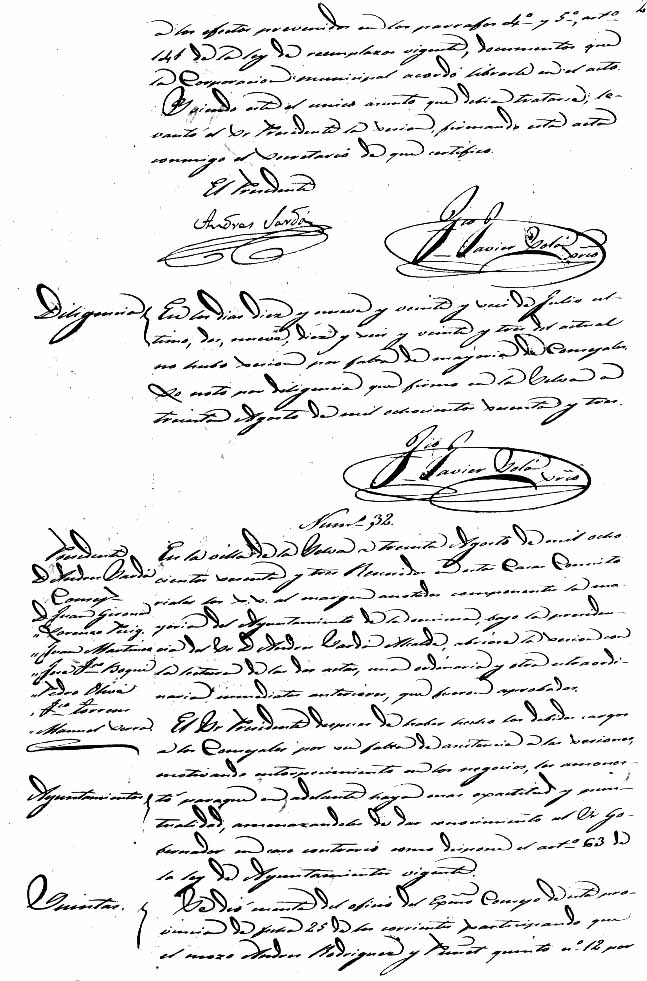 á los efectos prevenidos en los parrafos 4º y 5º, artº
146 de la ley de reemplazos vigente, documentos que
la Corporacion municipal acordó librarle en el acto.
Y siendo este el unico asunto que debia tratarse, le-
vantó el Sr Presidente la sesion, firmando esta acta
conmigo el Secretario de que certifico.
El Presidente
Andres Sardá
Fco
Javier Solá
srio
Diligencia
En los dias diez y nueve y veinte y seis de Julio ul-
timo, dos, nueve, diez y seis y veinte y tres del actual
no hubo sesion por falta de mayoria de Concejales.
Lo noto por diligencia que firmo en la Selva a
treinta Agosto de mil ochocientos sesenta y tres.
Fco
Javier Solá
srio
Num.º 32.
Presidente
D. Andres Sardá
Concej.s
D. Juan Girona
" Lorenzo Puig
" Juan Montserrat
" José Fco
" Pedro Olivé
" Fco Torrens
" Manuel
En la villa de la Selva a treinta Agosto de mil ocho
cientos sesenta y tres Reunidos en estas Casas Consisto
riales los S.S. al margen anotados componentes la ma-
yoria del Ayuntamiento de la misma, bajo la presiden-
cia del Sr D. Andres Sardá Alcalde, abriose la sesion con
la lectura de las dos actas, una ordinaria y otra estraordi-
naria inmediatas anteriores, que fueron aprobadas.
Ayuntamiento
El Sr Presidente despues de haber hecho los debidos cargos
a los Concejales por su falta de asistencia a las sesiones,
motivando entorpecimiento en los negocios, les amones-
tó paraque en adelante haya mas exactitud y pun-
tualidad, amenazandoles de dar conocimiento al Sr Go-
bernador en caso contrario como dispone el artº 63 de
la ley de Ayuntamientos vigente.
Quintas.
Se dió cuenta del oficio del Exmo Consejo de esta pro-
vincia de fecha 25 de los corrientes participando que
el mozo Andres Rodriguez y quinto nº 12 por